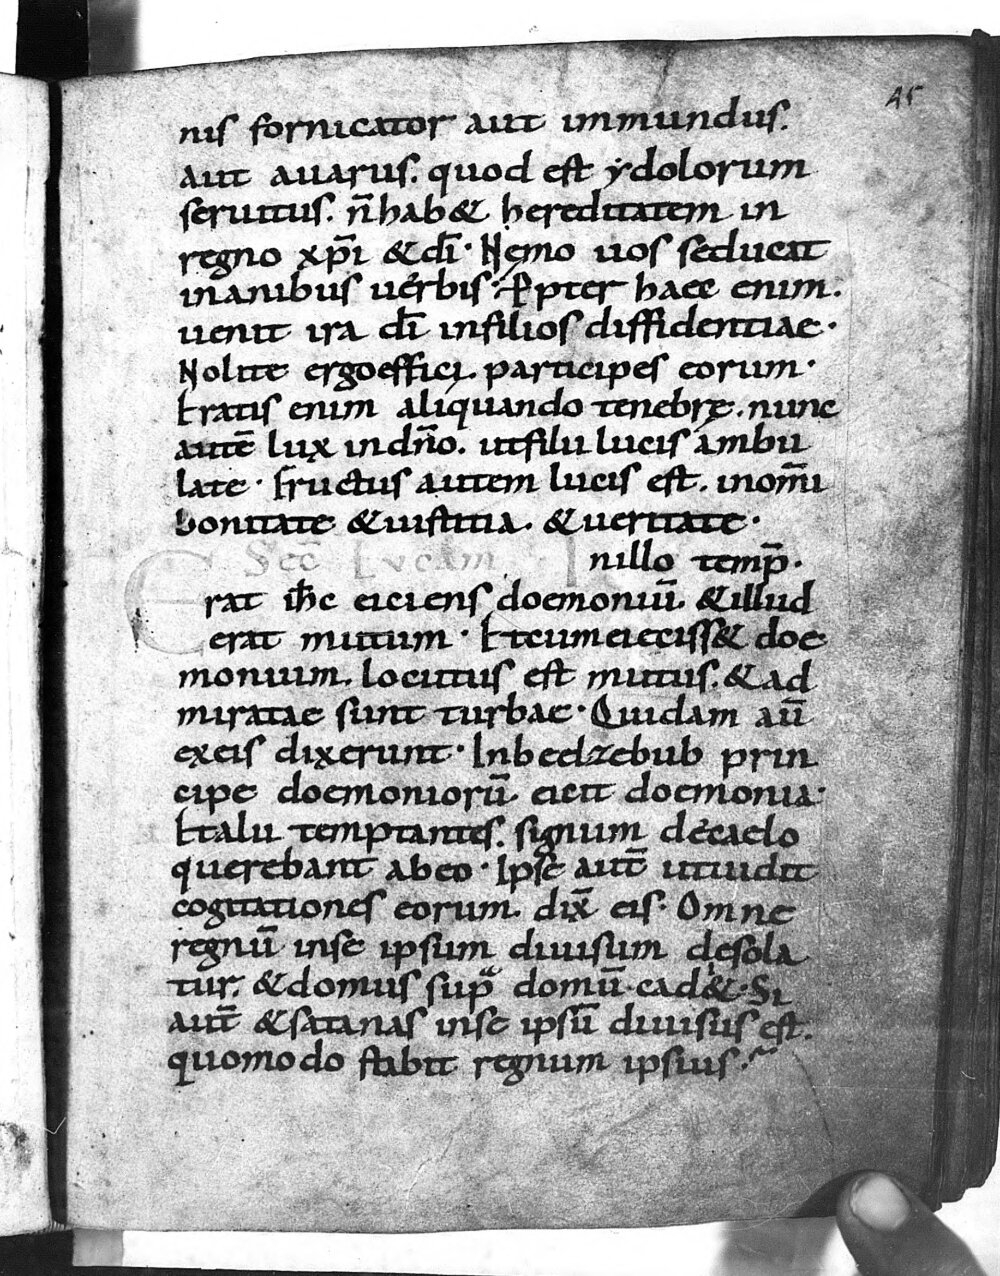 45
nis fornicator aut immundus.
aut auarus. quod est ydolorum
seruitus. n̄ hab& hereditatem in
regno xp̄i & dī· Nemo uos seducat
inanibus uerbis· Ppter haec enim.
uenit ira dī infilios diffidentiae·
Nolite ergo effici. participes eorum·
Eratis enim aliquando tenebrę. nunc
autē lux indn̄o. utfilii lucis ambu
late· Fructus autem lucis est. inom̄i
bonitate &iustitia. &ueritate·
Sec̄ Lucam In illo temp̄.
Erat ih̄c eiciens doemoniū. &illud
erat mutum· Etcumeieciss& doe
monium. locutus est mutus. &ad
miratae sunt turbae· Quidam aū
exeis dixerunt· Inbeelzebub prin
cipe doemoniorū. eicit doemonia·
Etalii temptantes. signum decaelo
querebant abeo· Ipse autē utuidit
cogitationes eorum. dix̄ eis· Omne
regnū inse ipsum diuisum desola
tur. &domus sup domū cad&· Si
autē &satanas inse ipsū diuisus est.
quomodo stabit regnum ipsius·